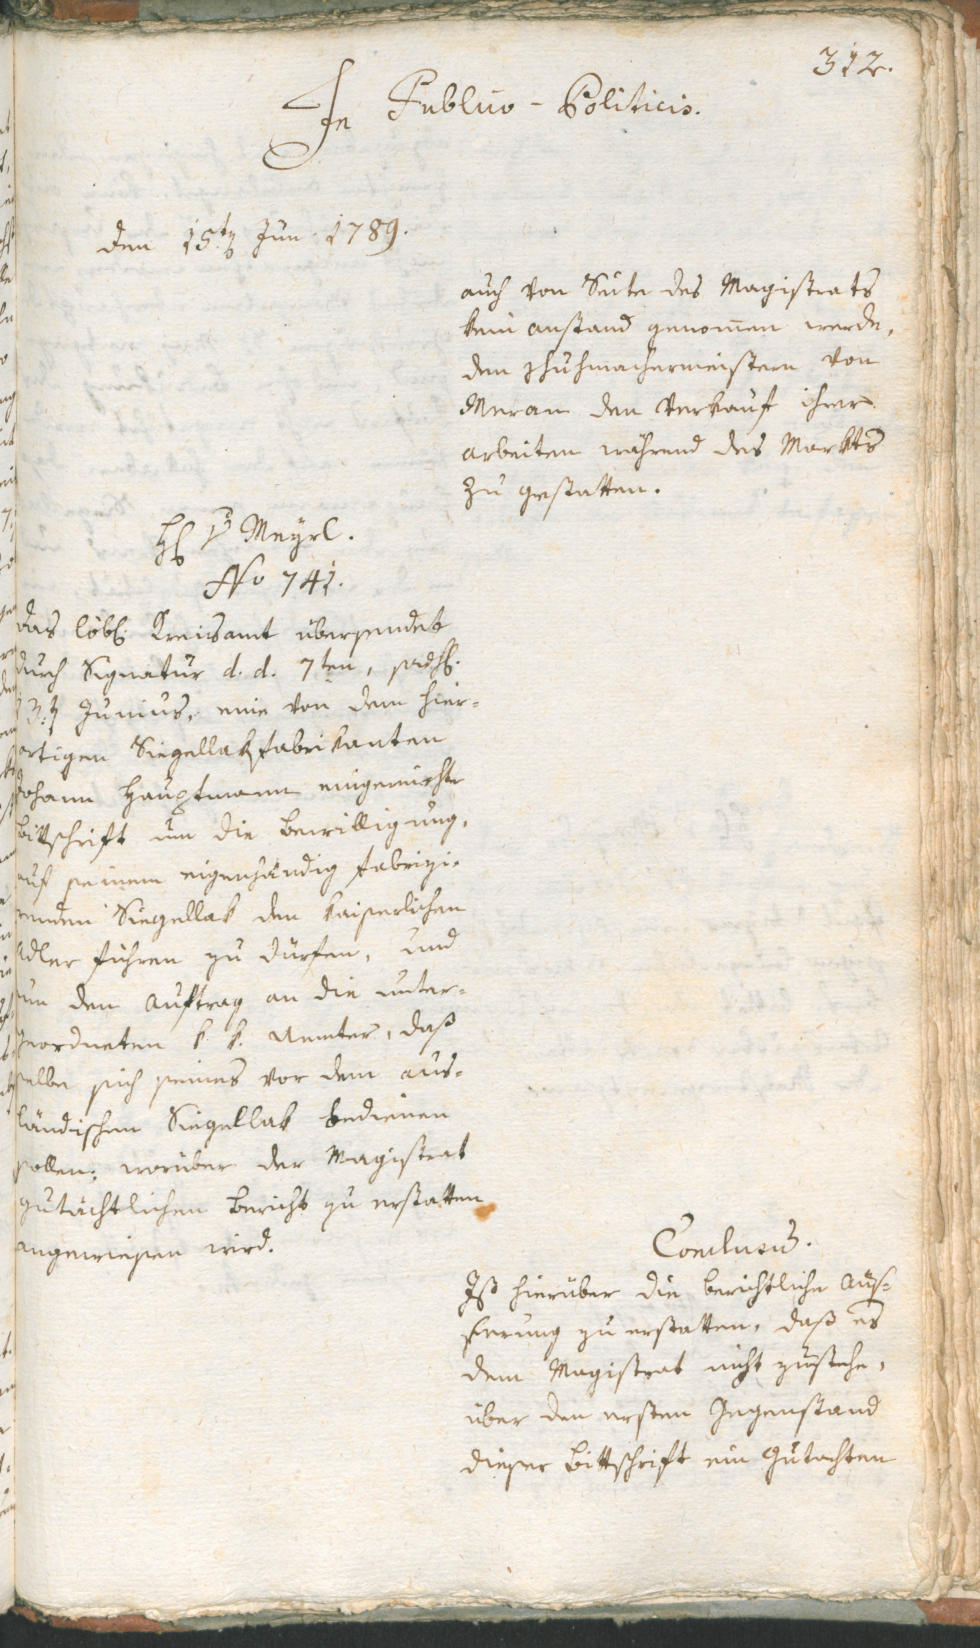 312.
In Publico-Politicis.
den 15t Jun. 1789.
auch von Seite des Magistrats
kein anstand genommen werde,
den Schuhmachermeistern von
Meran den Verkauf ihrer
arbeiten während des Markts
zu gestatten.
H Meÿrl.
No 741.
das löbl. Kreisamt übersendet
durch Signatur d. d. 7ten,
Junius, eine von dem hier-
ortigen Siegellakfabrikanten
Johann Hauptmann eingereichte
Bittschrift um die bewilligung,
auf seinem eigenhändig fabrizi-
renden Siegellak den kaiserlichen
Adler führen zu dürfen, und
um den Auftrag an die unter-
geordneten k. k. Aemter, daß
selbe sich seines vor dem aus-
ländischen Siegellak bedienen
sollen; worüber der Magistrat
gutächtlichen bericht zu erstatten
angewiesen wird.
Conclusum.
Ist hierüber die berichtliche Aüs-
serung zu erstatten, daß es
dem Magistrat nicht zustehe,
über den ersten Gegenstand
dieser bittschrift ein Gutachten